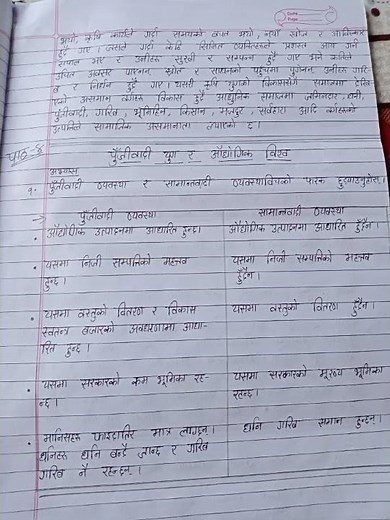 भयो, कृषि कार्यले गर्दा समयको बचत भयो, नयाँ खोज र आविष्कार
हुँदै गए । जसले गर्दा केहि सिमित व्यक्तिहरूले प्रशस्त आय गर्न
सफल भए र उनीहरू सुखी र सम्पन्न हुँदै गए भने कतिले
उचित अवसर पाएनन्, स्रोत र साधनको पहुँचमा पुगेनन्, उनीहरू गरि-
ब र निर्धन हुँदै गए । यसरी कृषि युगको विकाससँगै समाजमा देखि
एको असमान वर्गहरू विकास हुँदै आधुनिक समाजमा जमिनदार, धनी,
पुँजीवादी, गरिब, भूमिहीन, किसान, मजदुर, सर्वहारा आदि वर्गहरूको
सामाजिक असमानता ल्याएको छ ।
पाठ-४ पुँजीवादी युग र औद्योगिक विश्व
अभ्यास
१. पुँजीवादी व्यवस्था र सामान्तवादी व्यवस्थाबिचको फरक छुट्याउनुहोस् ।
→ पुँजीवादी व्यवस्था सामान्तवादी व्यवस्था
• औद्योगिक उत्पादनमा आधारित हुन्छ । औद्योगिक उत्पादनमा आधारित हुँदैन ।
• यसमा निजी सम्पत्तिको महत्त्व यसमा निजी सम्पत्तिको महत्त्व
हुन्छ । हुँदैन ।
• यसमा वस्तुको वितरण र विकास यसमा वस्तुको वितरण हुँदैन ।
स्वतन्त्र बजारको अवधारणामा आधा-
रित हुन्छ ।
• यसमा सरकारको कम भूमिका रह- यसमा सरकारको मूख्य भूमिका
न्छ । रहन्छ ।
• मानिसहरू फाइदातिर मात्र लाग्छन् । धनि गरिब समान हुन्छन् ।
धनिहरू धनि बन्दै जान्छ र गरिब
गरिब नै रहन्छन् ।